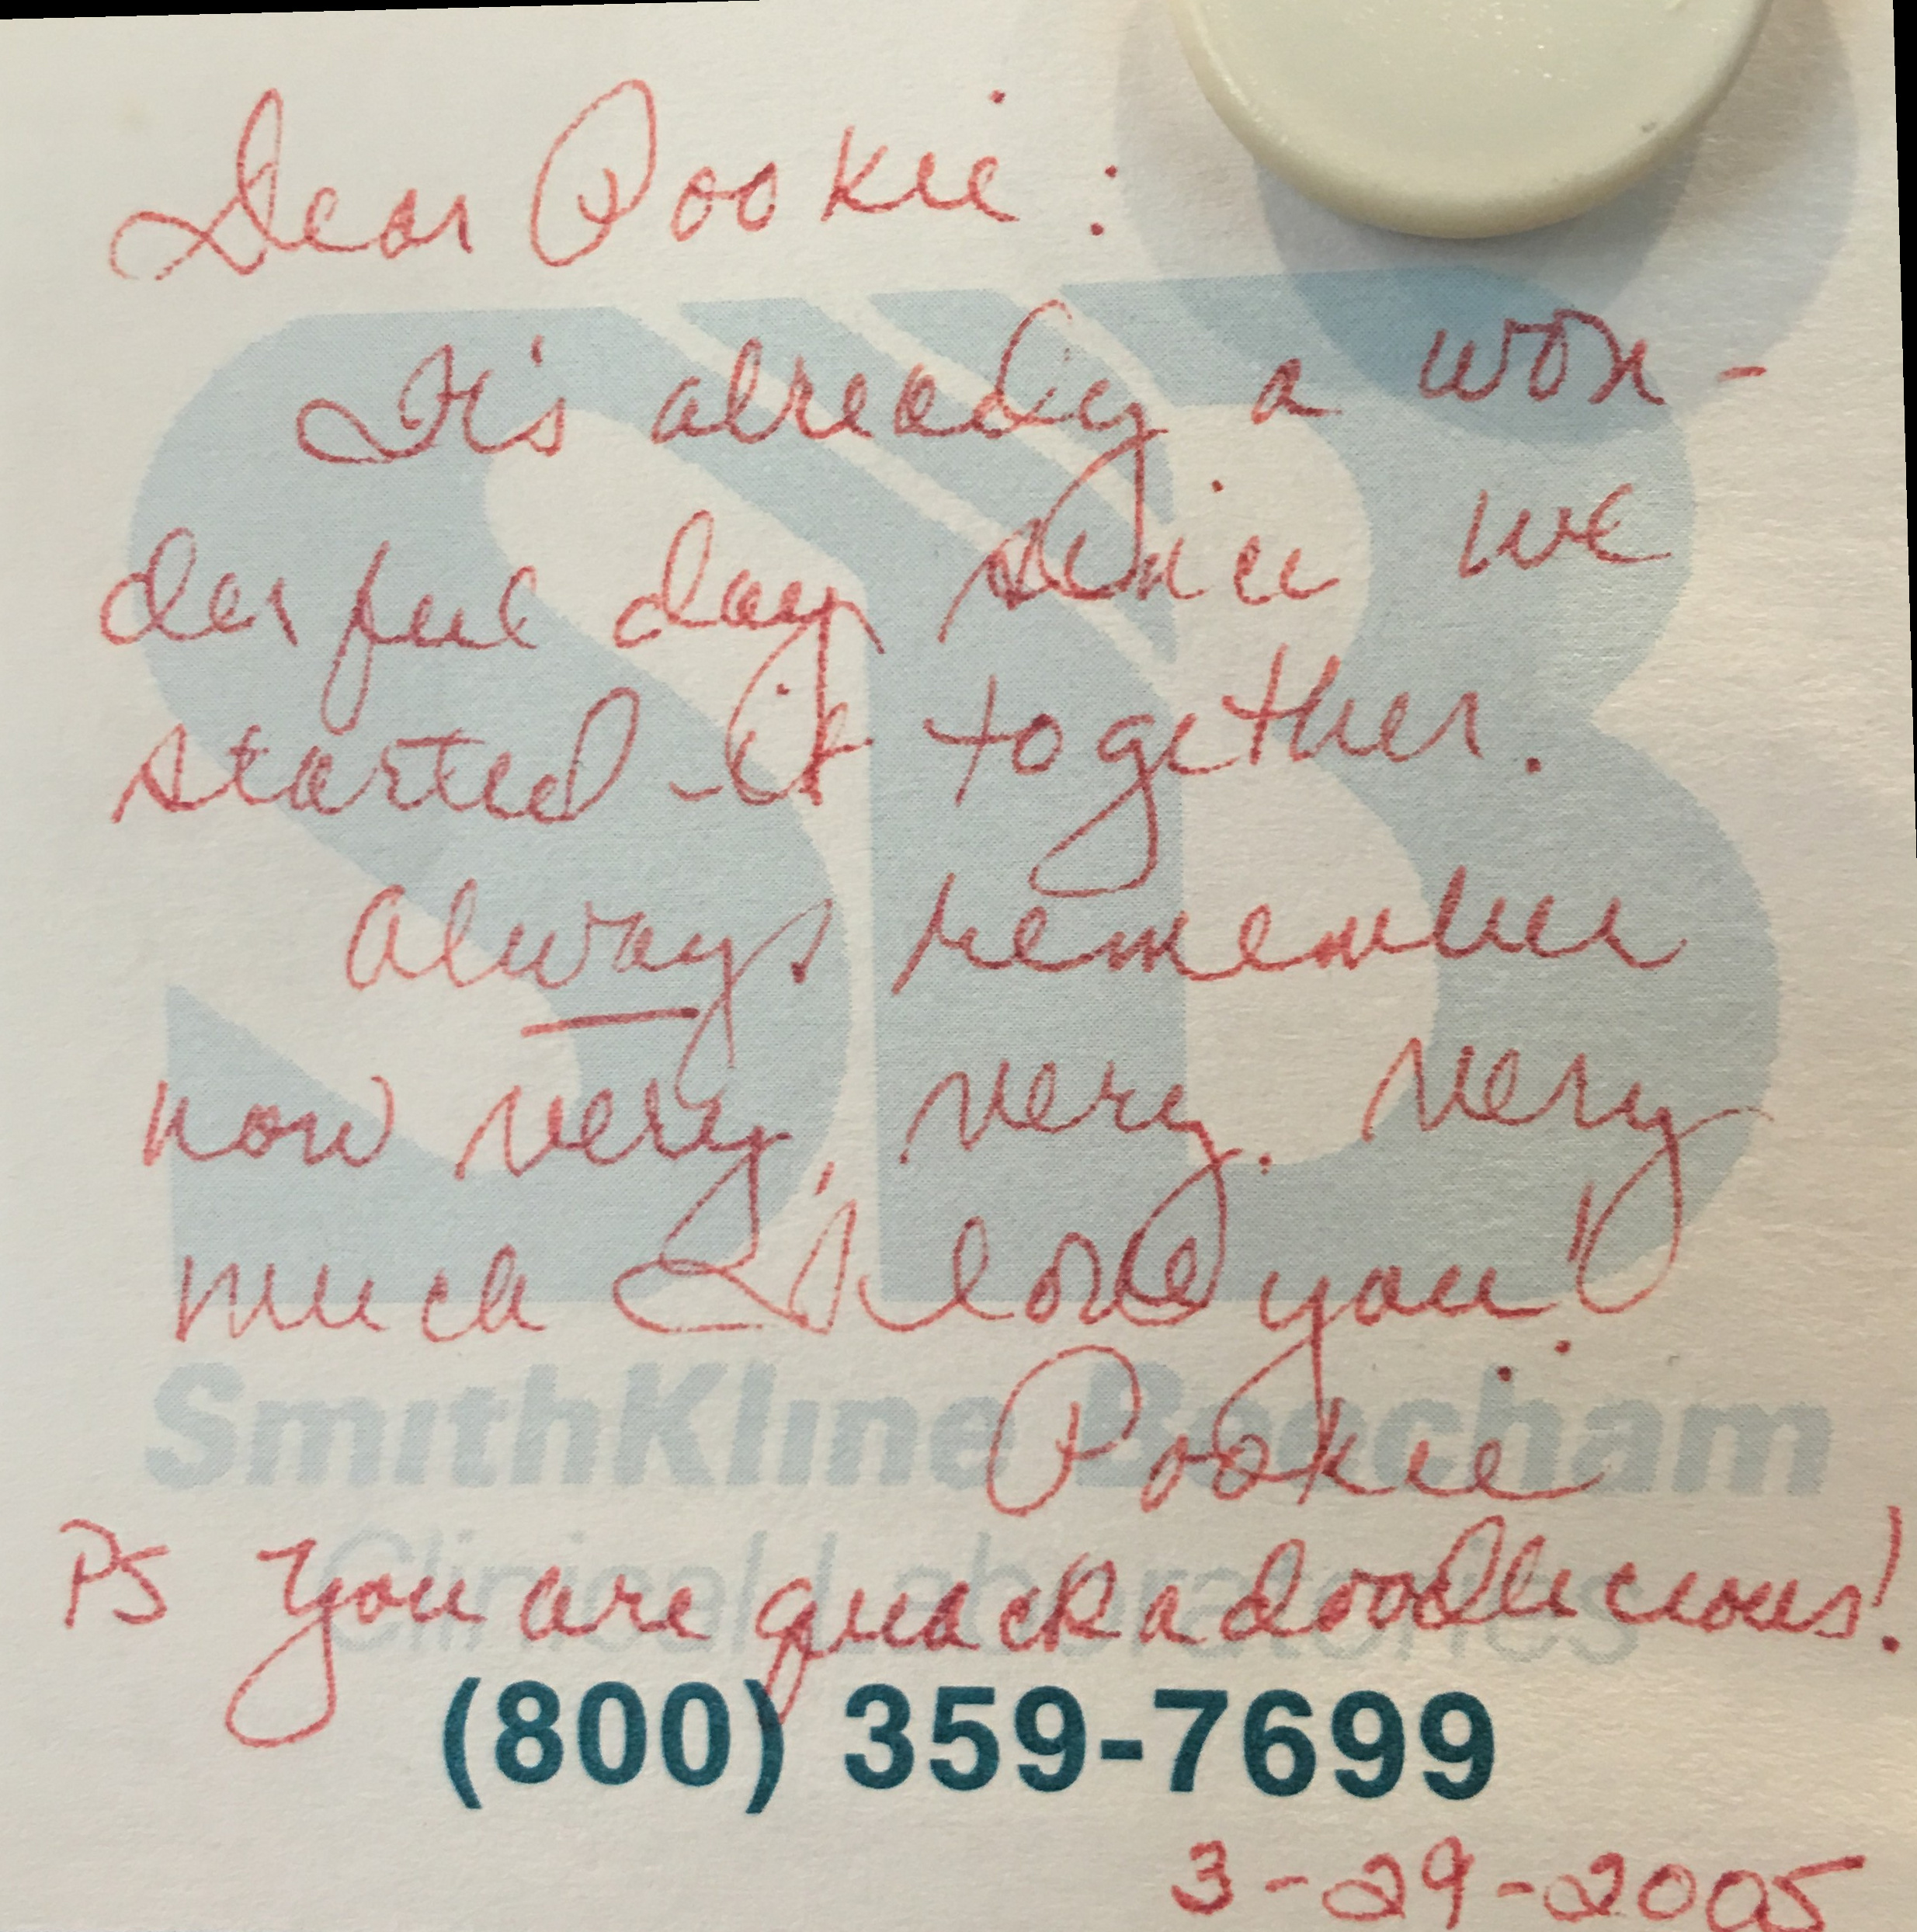 Dear Pookie:
It's already a won-
derful day since we
started it together.
Always remember
how very, very, very
much I love you!
Pookie
SmithKline Beecham
PS You are quackadoodlicious!
Clinical Laboratories
(800) 359-7699
3-29-2005